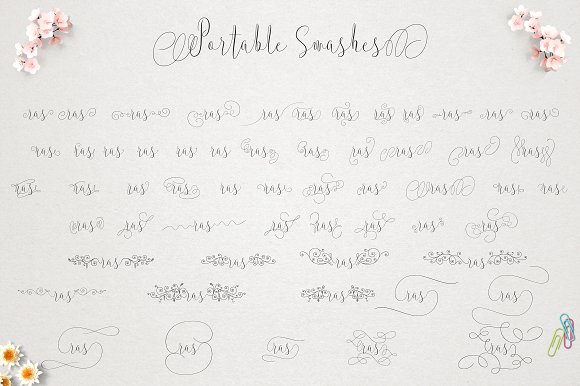 Portable Swashes
ras ras ras ras ras ras ras ras ras ras ras ras
ras ras ras ras ras ras ras ras ras ras ras ras
ras ras ras ras ras ras ras ras ras ras ras ras
ras ras ras ras ras ras ras ras
ras ras ras ras
ras ras ras ras ras
ras ras ras ras ras